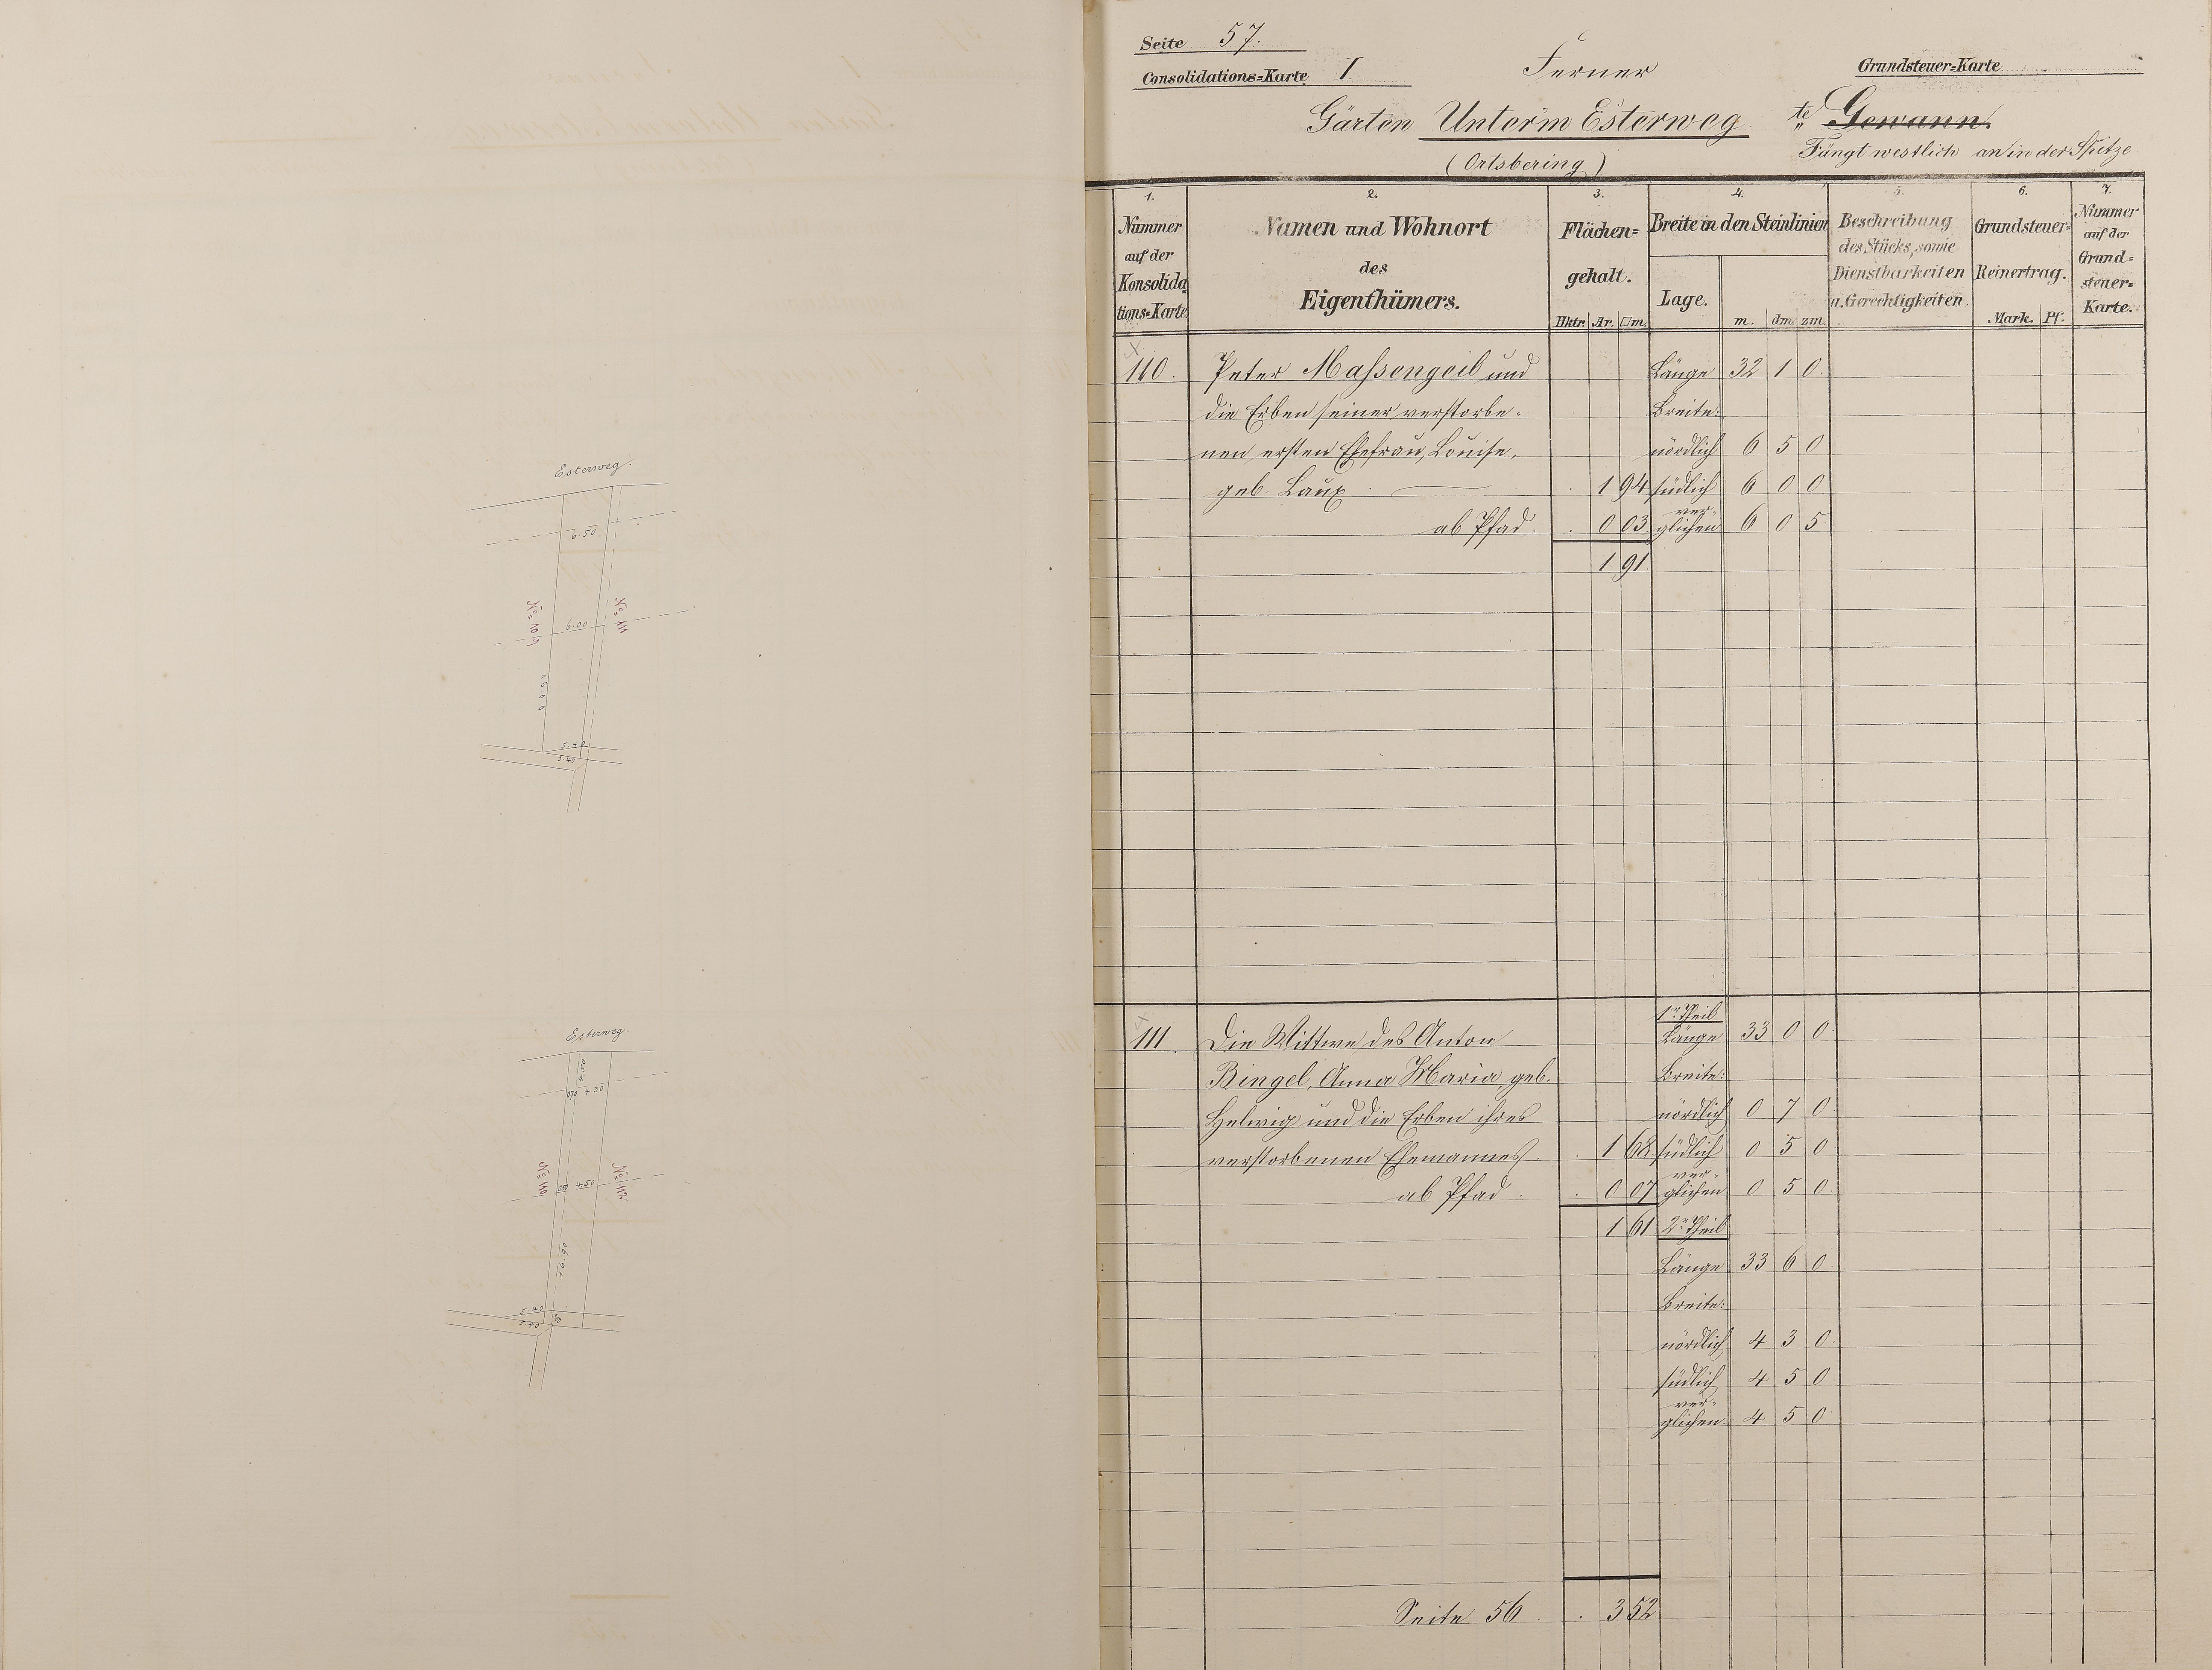 Esterweg.
6.50
No 109
6.00
No 111
5.40
5.40
Esterweg.
0.70 4.30
No 110
0.50 4.50
No 112
5.40
5.40
Seite 57.
Consolidations=Karte I Ferner Grundsteuer=Karte
Gärten Unterm Esterweg te Gewann.
(Ortsbering) Fängt westlich an in der Spitze
1. 2. 3. 4. 5. 6. 7.
Nummer auf der Konsolidations=Karte
Namen und Wohnort des Eigenthümers.
Flächen=gehalt.
Hktr. Ar. □m.
Breite in den Steinlinien
Lage. m. dm. zm.
Beschreibung des Stücks, sowie Dienstbarkeiten u. Gerechtigkeiten.
Grundsteuer=Reinertrag.
Mark. Pf.
Nummer auf der Grund=steuer=Karte.
110. Peter Maſsengeil und Länge 32 1 0.
die Erben seiner verstorbe= Breite:
nen ersten Ehefrau, Louise, nördlich 6 5 0
geb. Laux . 1 94 südlich 6 0 0
ab Pfad . 0 03 ver=glichen 6 0 5
1 91
1r. Theil
111 Die Wittwe des Anton Länge 33 0 0
Bingel, Anna Maria, geb. Breite:
Helwig und die Erben ihres nördlich 0 7 0
verstorbenen Ehemannes . 1 68 südlich 0 5 0
ab Pfad . 0 07 ver=glichen 0 5 0
1 61 2r. Theil
Länge 33 6 0
Breite:
nördlich 4 3 0
südlich 4 5 0
ver=glichen 4 5 0
Seite 56 . 3 52